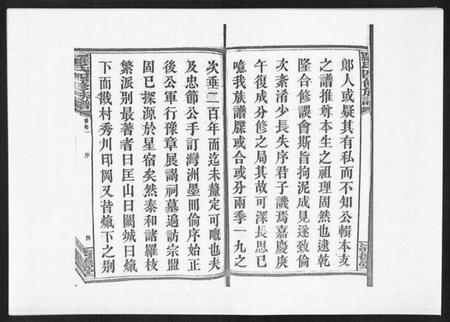 郞人或疑其有私而不知公輯本支
之譜推尊本生之祖理固然也逮乾
隆合修誤會斯旨拘泥成見遂致倫
次紊淆少長失序君子譏焉嘉慶庚
午復成分修之局其故可深長思已
噫我族譜牒或合或分兩季一九之
次垂二百年而迄未釐定可嘅也夫
及忠節公手訂灣洲墨冊倫序始正
後公軍行豫章展謁祠墓遍訪宗盟
固已探源於星宿矣然泰和譜羅枝
繁派別最著者曰匡山曰闕城曰熂
下而戩村秀川印岡又皆熂下之別
羅氏四修族譜
卷一
序
四